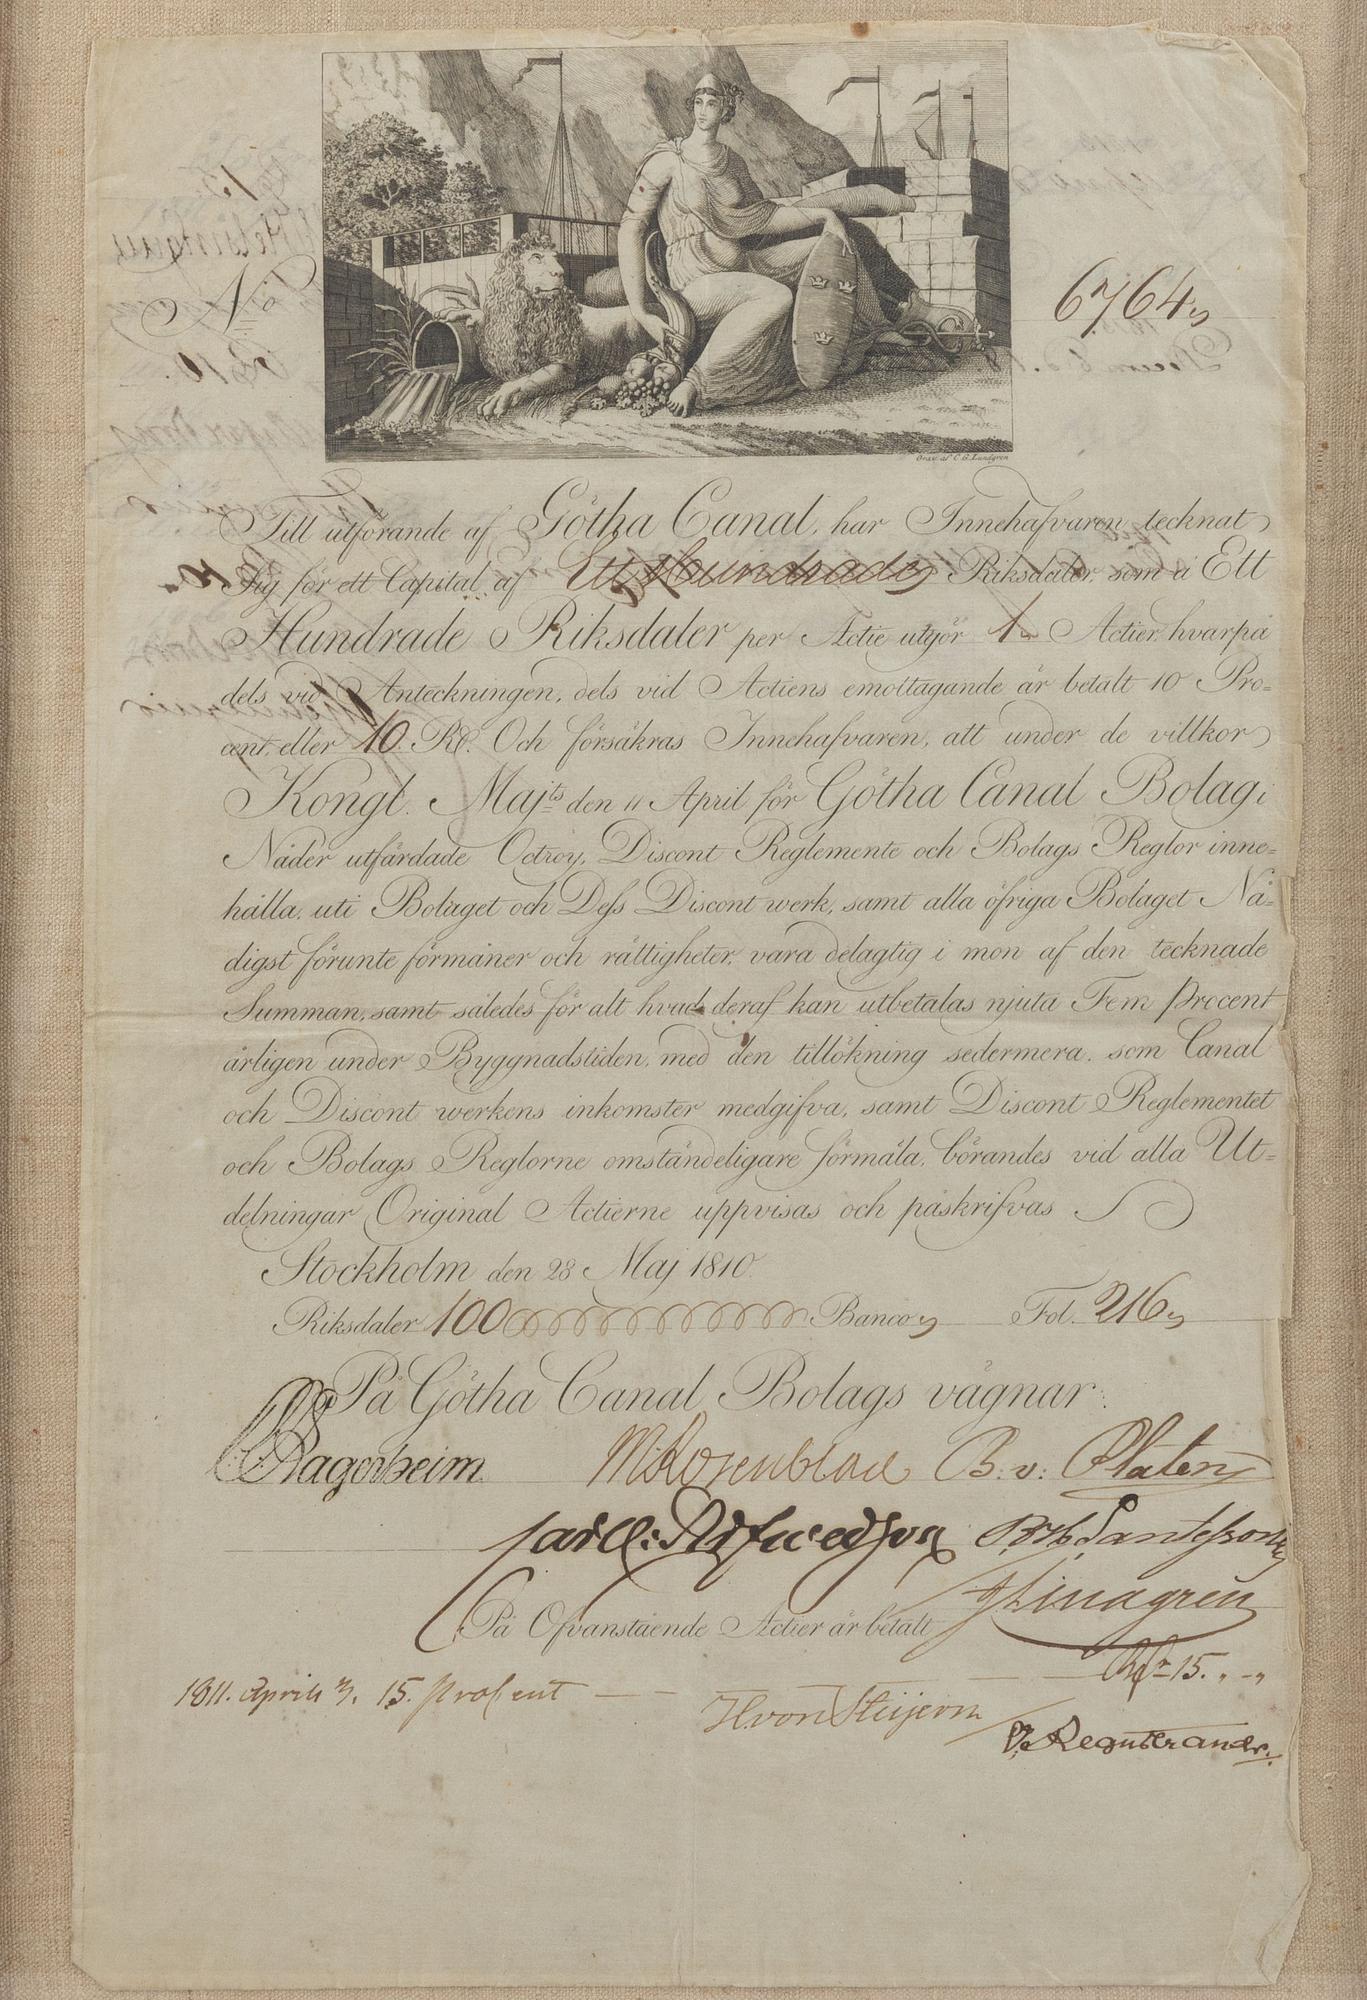 Grav. af C. G. Lundgren
No 6764
Till utförande af Götha Canal, har Innehafvaren tecknat
Sig för ett Capital af Ett Hundrade Riksdaler, som à Ett
Hundrade Riksdaler per Actie utgör 1 Actier, hvarpå
dels vid Anteckningen, dels vid Actiens emottagande är betalt 10 Pro=
cent, eller 10 Rd. Och försäkras Innehafvaren, att under de villkor
Kongl. Majts den 11 April för Götha Canal Bolag i
Nåder utfärdade Octroy, Discont Reglemente och Bolags Reglor inne=
hålla, uti Bolaget och Dess Discont werk, samt alla öfriga Bolaget Nå=
digst förunte förmåner och rättigheter, vara delagtig i mon af den tecknade
Summan, samt således för alt hvad deraf kan utbetalas njuta Fem Procent
årligen under Byggnadstiden, med den tillökning sedermera, som Canal
och Discont werkens inkomster medgifva, samt Discont Reglementet
och Bolags Reglorne omständeligare förmäla, börandes vid alla Ut=
delningar Original Actierne uppvisas och påskrifvas
Stockholm den 28 Maj 1810
Riksdaler 100 Banco Fol. 216
På Götha Canal Bolags vägnar:
Lagerheim M. Rosenblad B. v. Platen
Carl C: Arfwedson Santesson
J Lindgren
På Ofvanstående Actier är betalt
1811. April 3. 15. Procent — — — — 15. „ - „
H von Stiijern